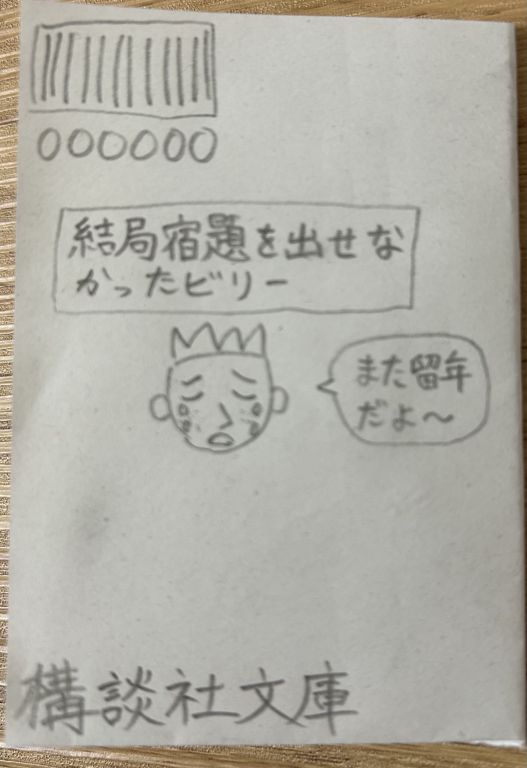 000000
結局宿題を出せな
かったビリー
また留年
だよ〜
構談社文庫